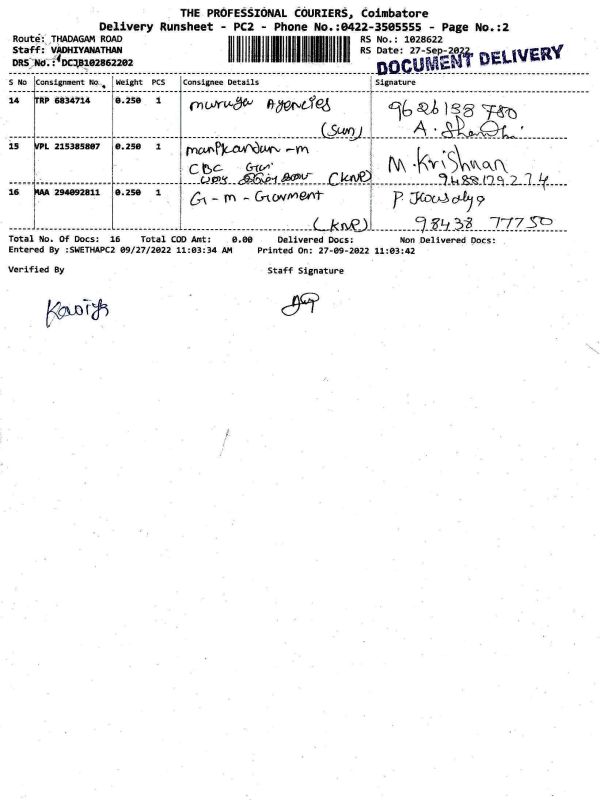 THE PROFESSIONAL COURIERS, Coimbatore
Delivery Runsheet - PC2 - Phone No.:0422-3505555 - Page No.:2
Route: THADAGAM ROAD
RS No.: 1028622
Staff: VADHIYANATHAN
RS Date: 27-Sep-2022
DRS No.: DCJB102862202
DOCUMENT DELIVERY
S No Consignment No. Weight PCS Consignee Details Signature
14 TRP 6834714 0.250 1 muruga Agencies 9626138 780
(Sun) A. Shanthi
15 VPL 215385807 0.250 1 manikandan - m M. Krishnan
CBC
(KNP) 9488129274
16 MAA 294092811 0.250 1 G - m - Garment P. Kousalya
(KNP) 98438 77750
Total No. Of Docs: 16 Total COD Amt: 0.00 Delivered Docs: Non Delivered Docs:
Entered By :SWETHAPC2 09/27/2022 11:03:34 AM Printed On: 27-09-2022 11:03:42
Verified By Staff Signature